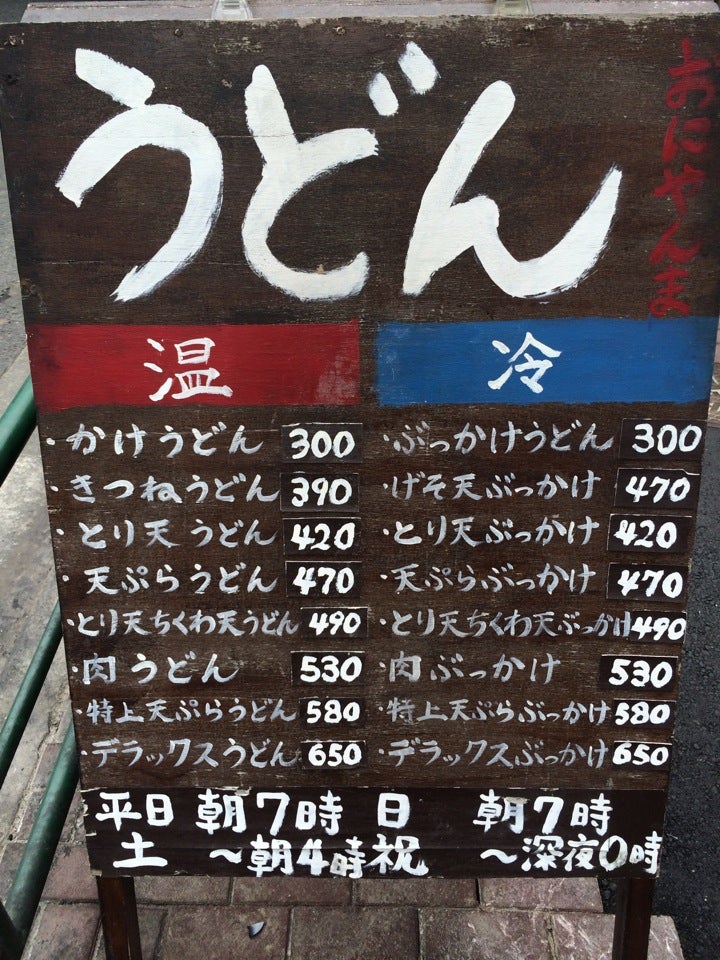 うどん
おにやんま
温
・かけうどん 300
・きつねうどん 390
・とり天うどん 420
・天ぷらうどん 470
・とり天ちくわ天うどん 490
・肉うどん 530
・特上天ぷらうどん 580
・デラックスうどん 650
冷
・ぶっかけうどん 300
・げそ天ぶっかけ 470
・とり天ぶっかけ 420
・天ぷらぶっかけ 470
・とり天ちくわ天ぶっかけ 490
・肉ぶっかけ 530
・特上天ぷらぶっかけ 580
・デラックスぶっかけ 650
平日 朝7時
土 〜朝4時
日 朝7時
祝 〜深夜0時